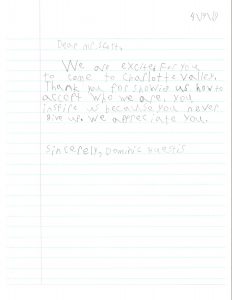 Dear mr Scott,
We are excited for you
to come to Charlotte Valley.
Thank you for showing us how to
accept who we are. you
inspire us because you never
give up. We appreciate you.
Sincerely, Dominic